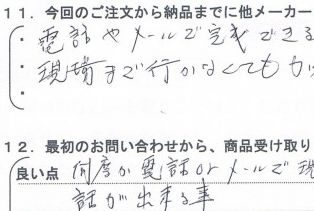 11．今回のご注文から納品までに他メーカー
・電話やメールで完成できる
・現場まで行かなくても
・
12．最初のお問い合わせから、商品受け取り
良い点 何度か電話orメールで現
話が出来る事